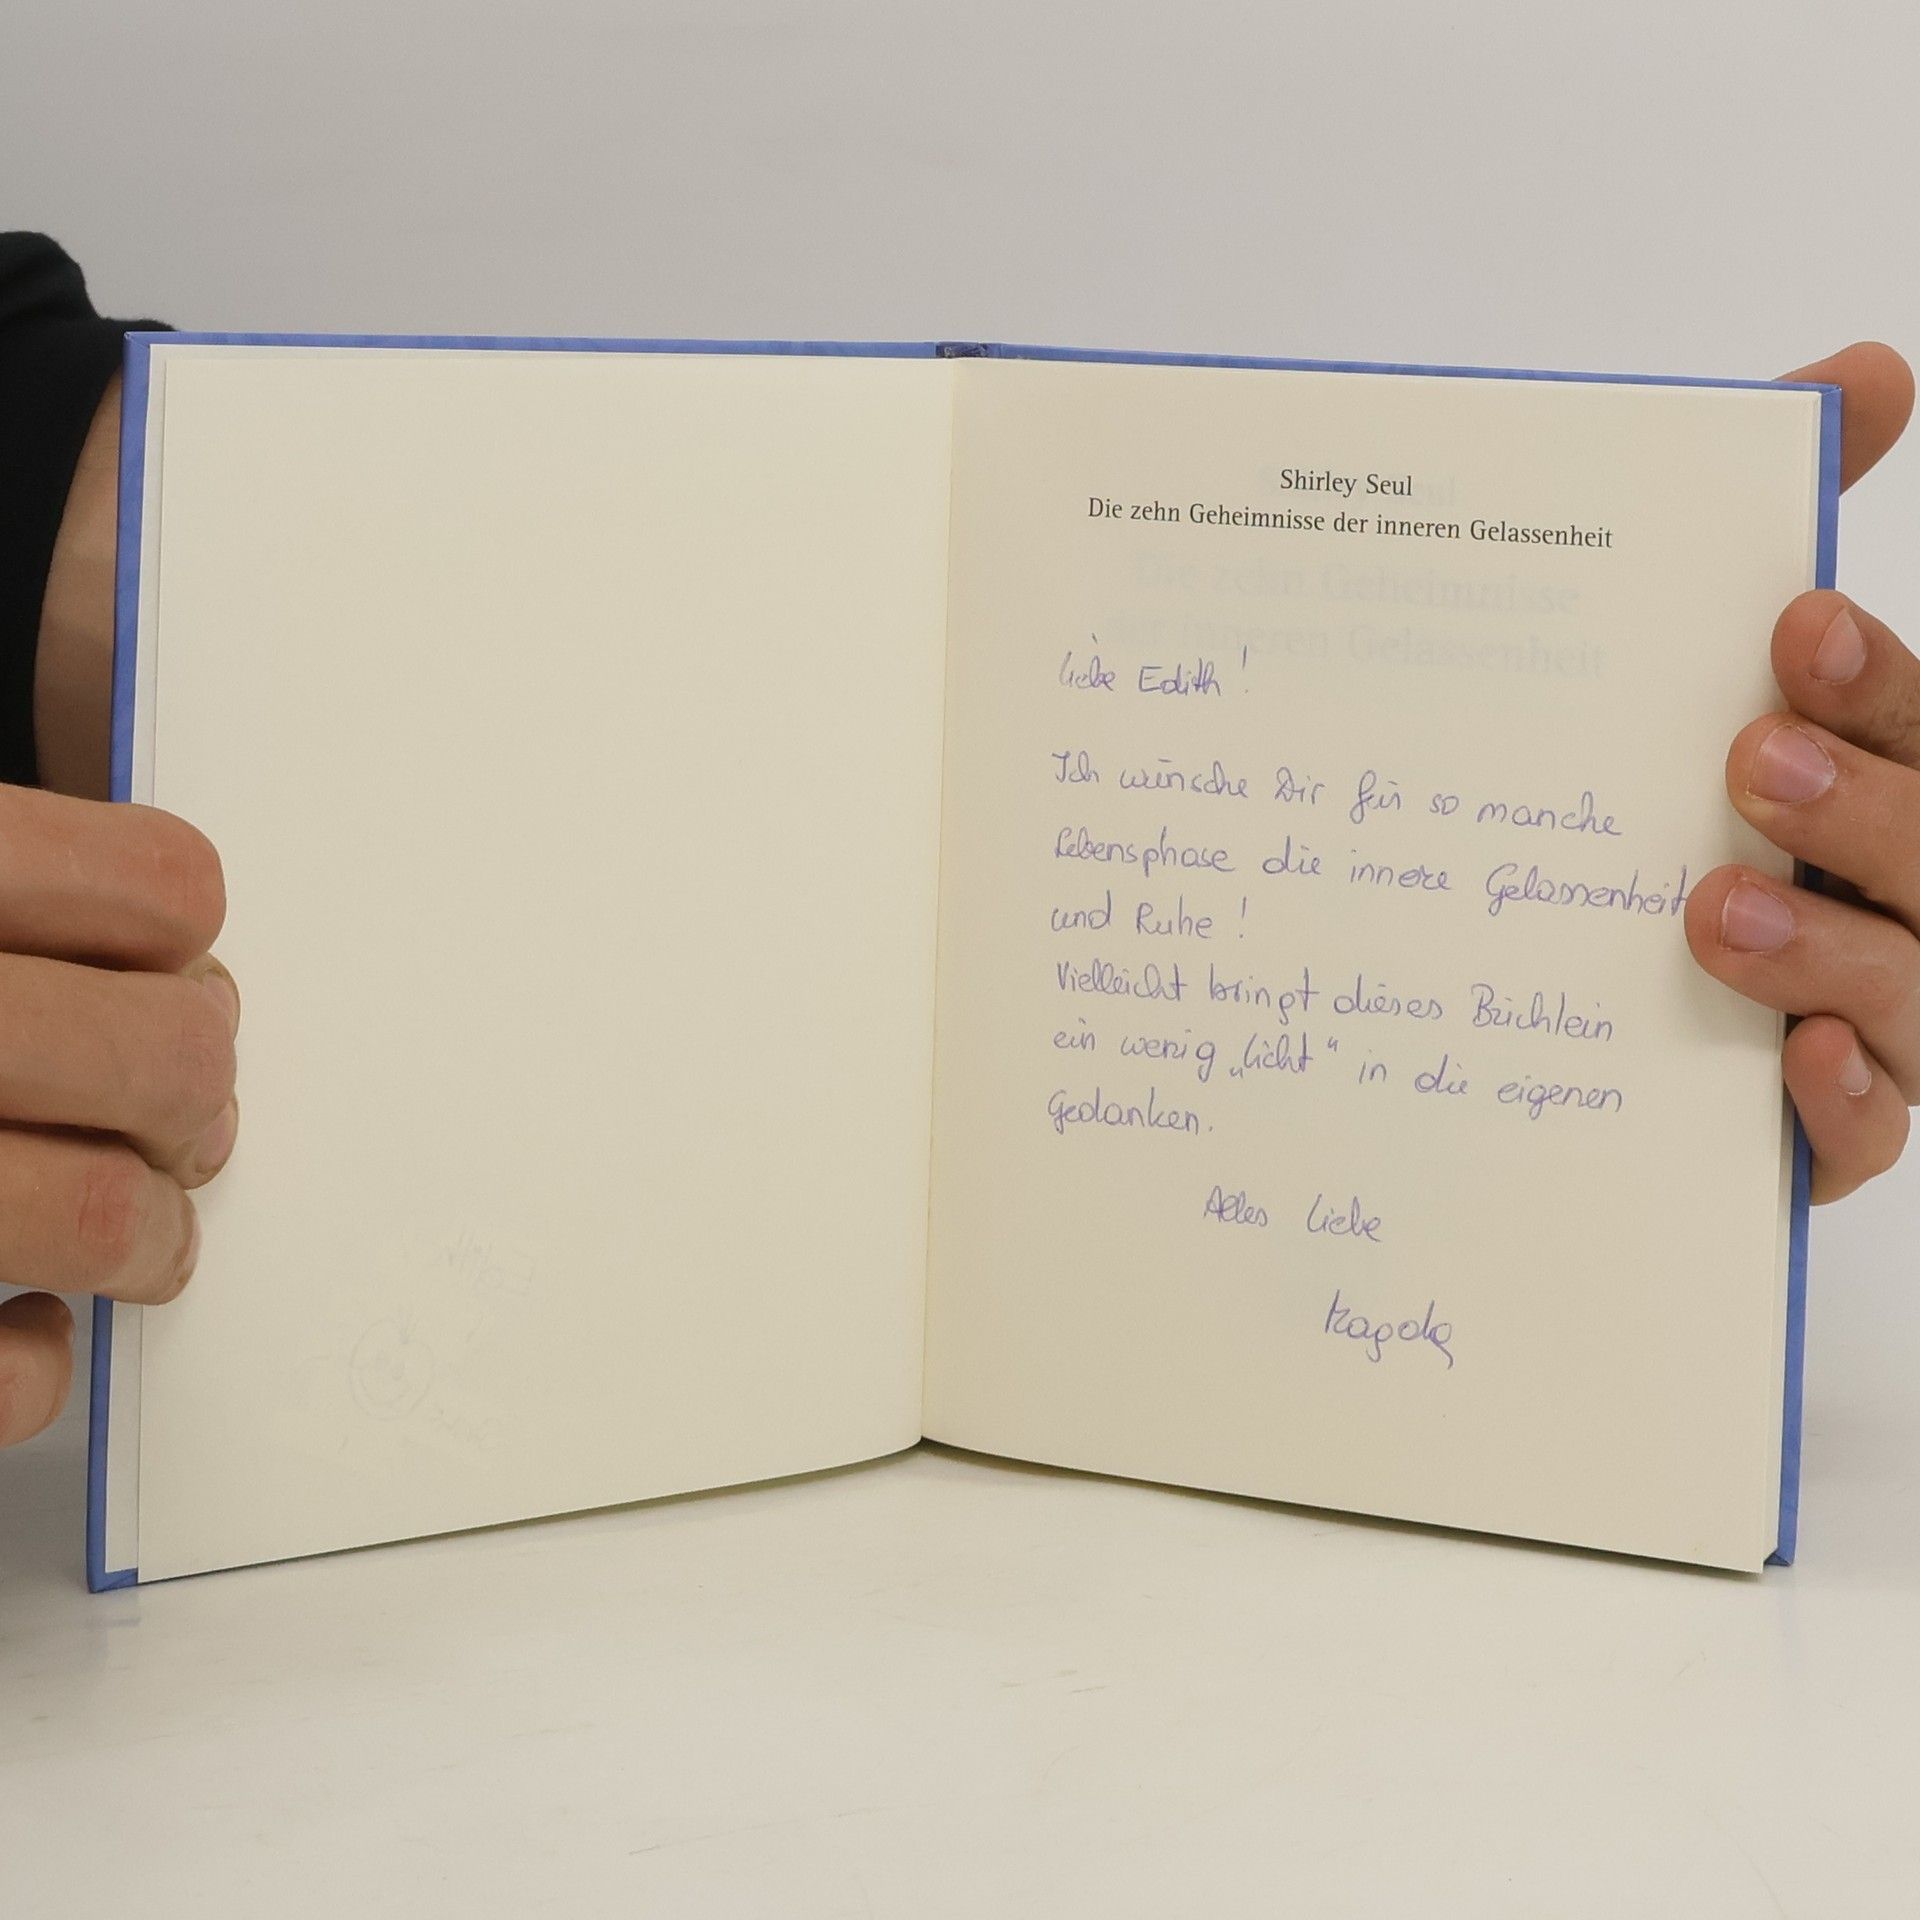 Shirley Seul
Die zehn Geheimnisse der inneren Gelassenheit
Die zehn Geheimnisse
der inneren Gelassenheit
Liebe Edith!
Ich wünsche Dir für so manche
Lebensphase die innere Gelassenheit
und Ruhe!
Vielleicht bringt dieses Büchlein
ein wenig „Licht“ in die eigenen
Gedanken.
Alles Liebe
Edith